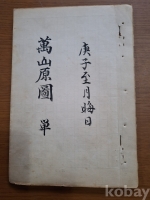 庚子至月晦日
萬山原圖 單
kobay